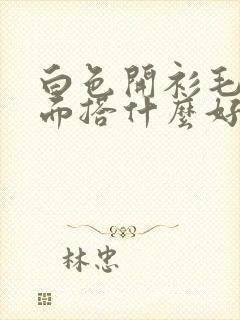 白色開衫毛
而搭什麼好
林忠